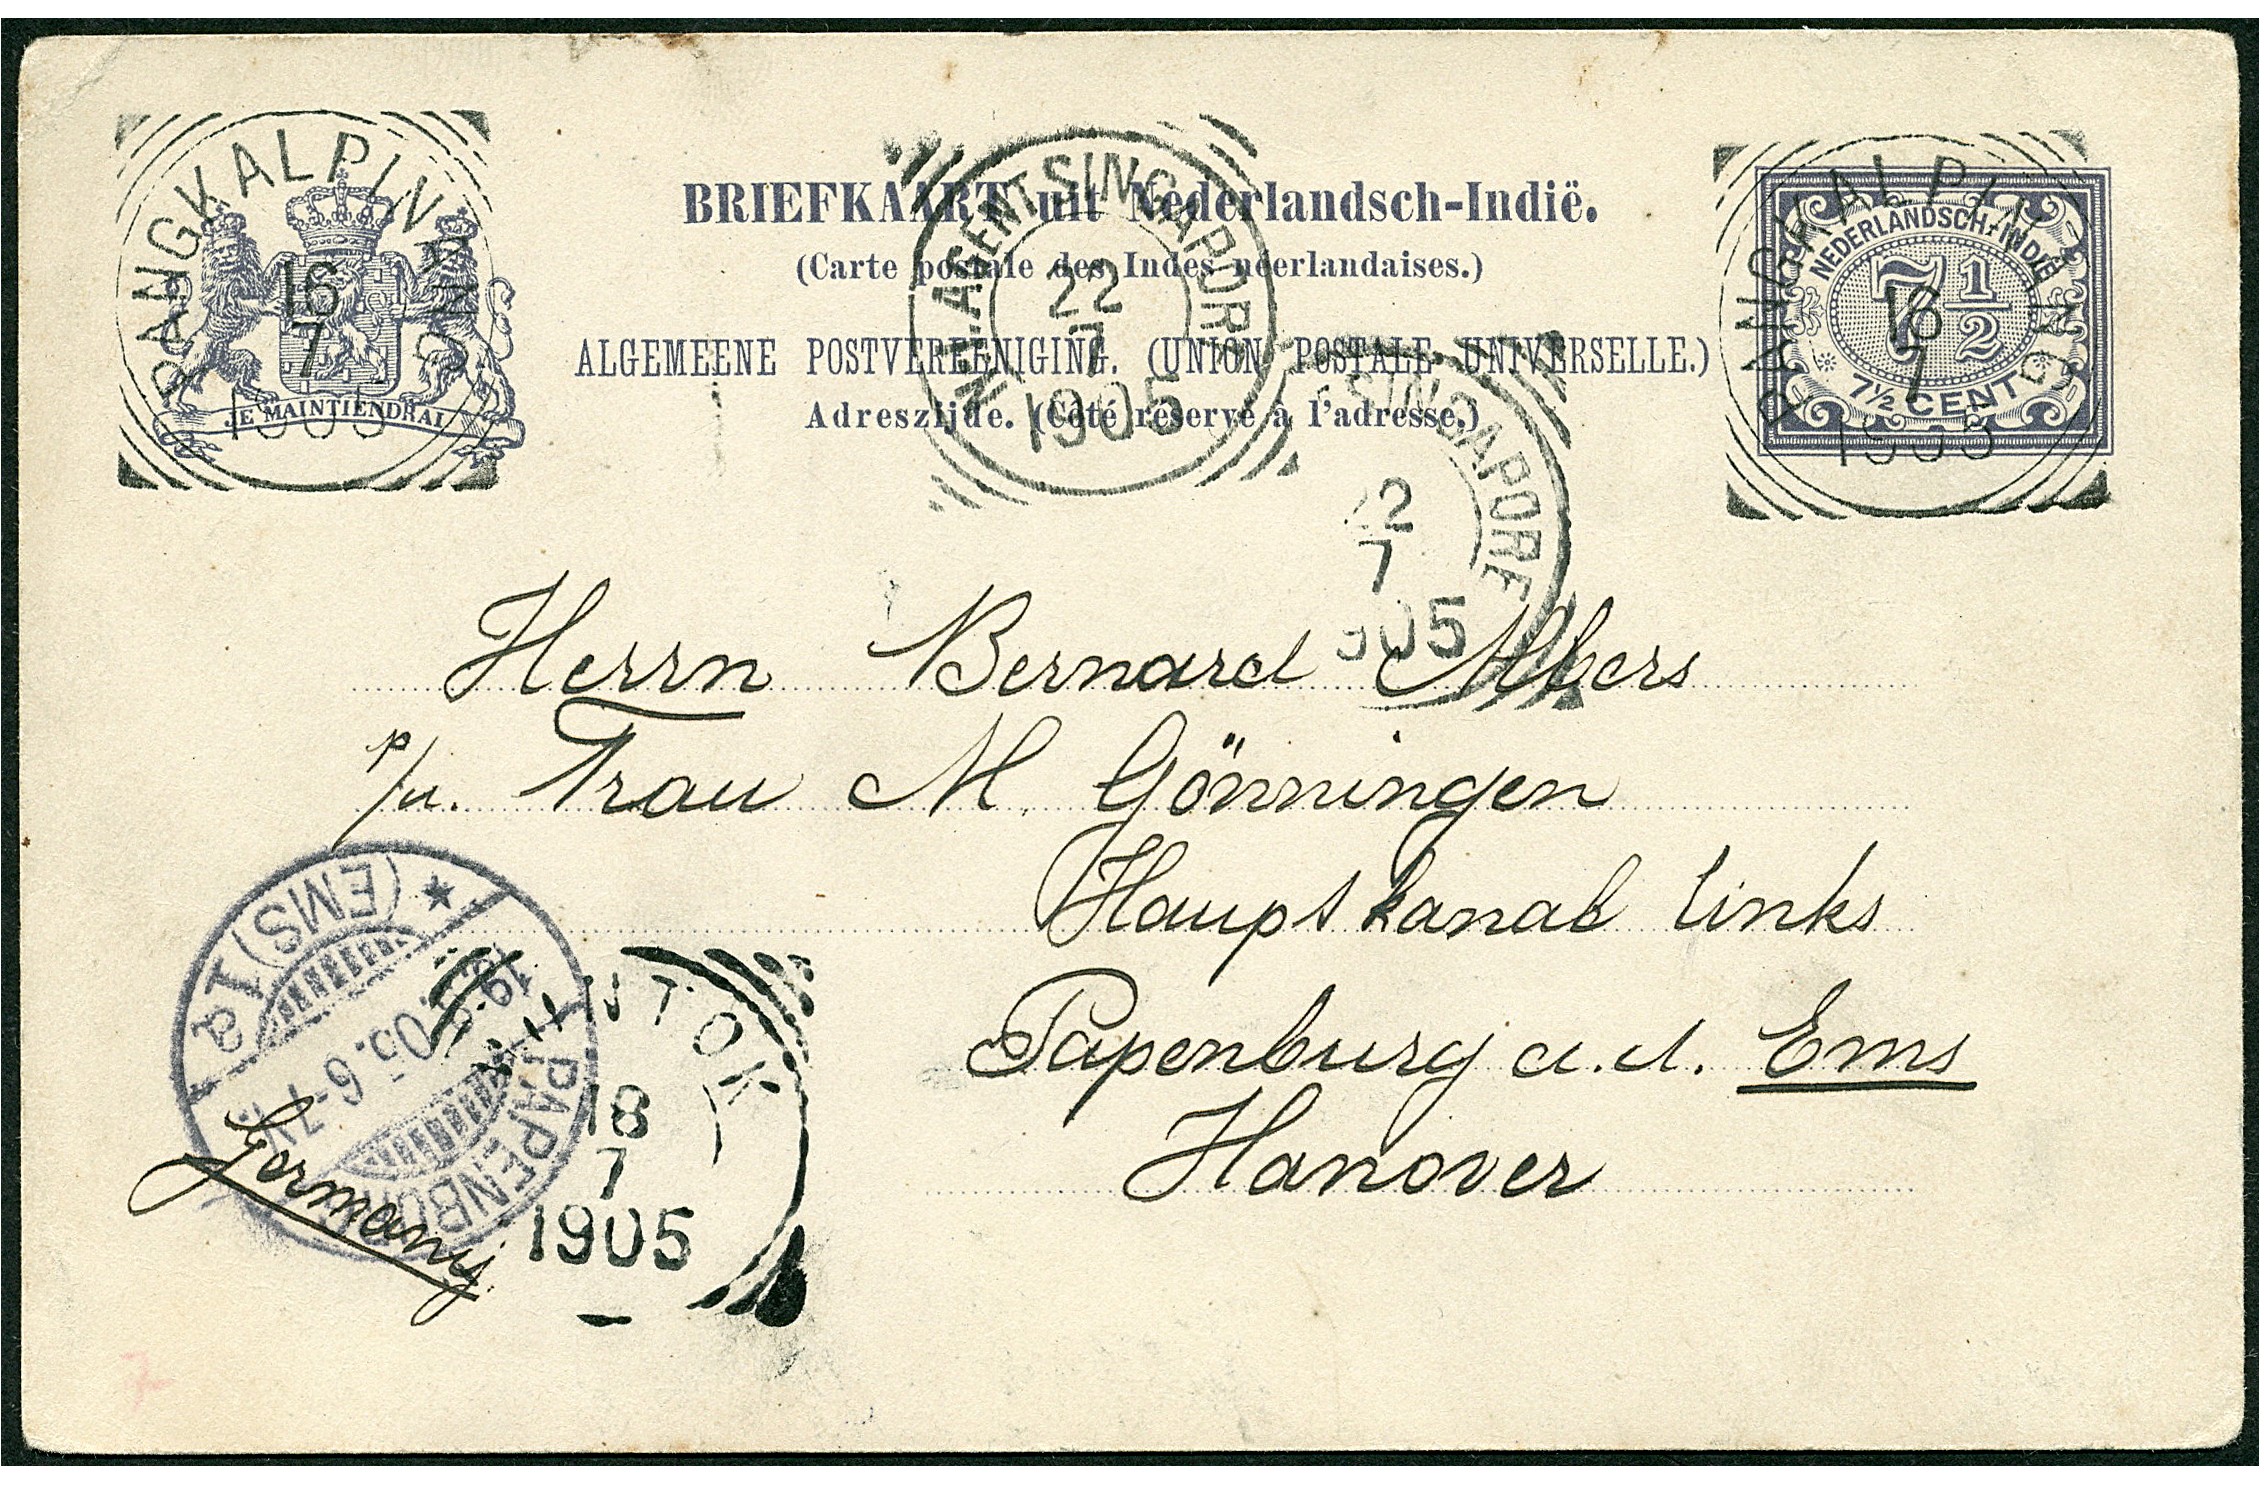 BRIEFKAART uit Nederlandsch-Indië.
(Carte postale des Indes néerlandaises.)
ALGEMEENE POSTVEREENIGING. (UNION POSTALE UNIVERSELLE.)
Adreszijde. (Côté réservé à l'adresse.)
PANGKALPINANG
16
7
1905
JE MAINTIENDRAI
N.I. AGENT SINGAPORE
22
7
1905
PANGKALPINANG
16
7
1905
NEDERLANDSCH-INDIË
7 1/2
7½ CENT
SINGAPORE
22
7
905
Herrn Bernard Albers
p/u. Frau M Gönningen
Hauptkanal links
Papenburg a.d. Ems
Hanover
PAPENBURG
(EMS) 1a
19.8.05. 6-7V.
MUNTOK
18
7
1905
Germany